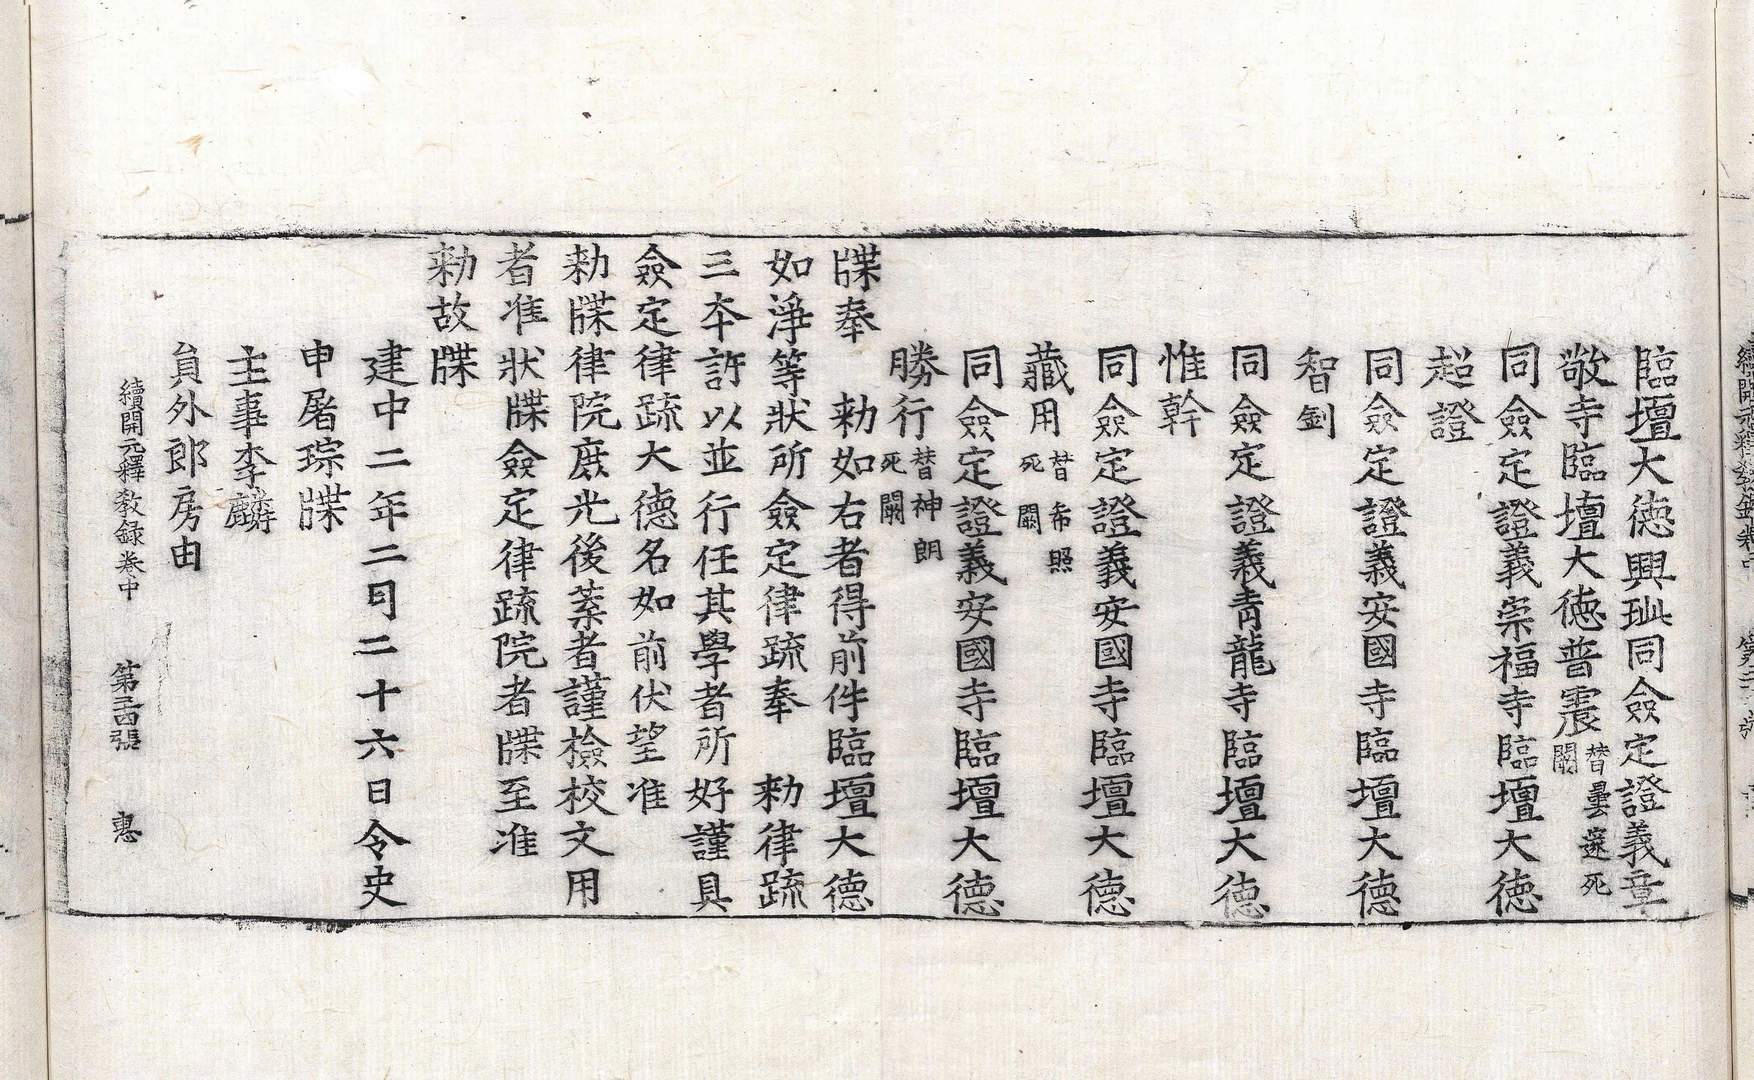 臨壇大徳興玼同僉定證義章
敬寺臨壇大徳普震替曇邃死闕
同僉定證義崇福寺臨壇大徳
超證
同僉定證義安國寺臨壇大德
智釗
同僉定證義青龍寺臨壇大德
惟幹
同僉定證義安國寺臨壇大德
藏用替希照死闕
同僉定證義安國寺臨壇大德
勝行替神朗死闕
牒奉　勑如右者得前件臨壇大德
如淨等狀所僉定律䟽奉　勑律䟽
三夲許以並行任其學者所好謹具
僉定律䟽大德名如前伏望准
勑牒律院庶光後葉者謹檢校文用
者准狀牒僉定律䟽院者牒至准
勑故牒
建中二年二月二十六日令史
申屠琮牒
主事李麟
員外郎房由
續開元釋教録卷中　第三四張　惠